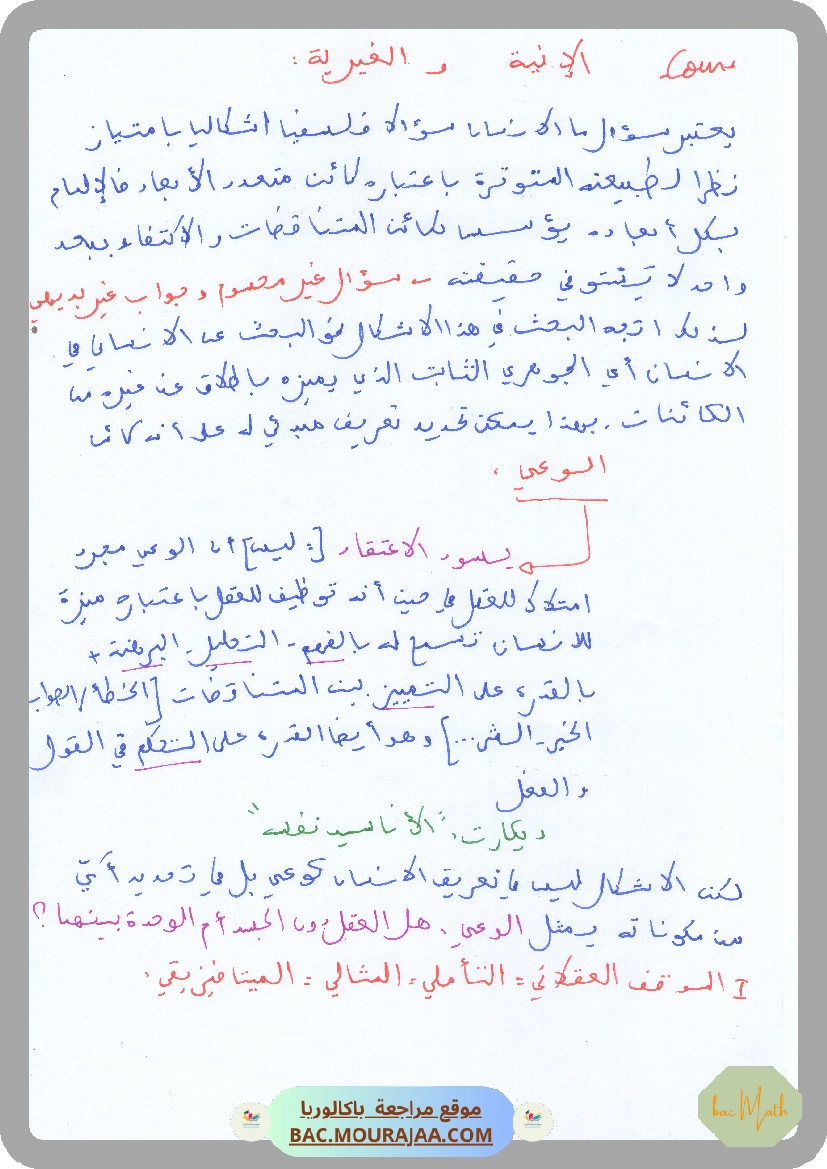 Cours الإنية و الغيرية :
يعتبر سؤال ما الانسان سؤالا فلسفيا اشكاليا بامتياز
نظرا لطبيعته المتوترة باعتباره كائن متعدد الأبعاد فالإلمام
بكل أبعاده يؤسس لكائن المتناقضات والاكتفاء ببعد
واحد لا يستوفي حقيقته ← سؤال غير محسوم وجواب غير بديهي
لذلك اتجه البحث في هذا الاشكال نحو البحث عن الانساني في
الانسان أي الجوهري الثابت الذي يميزه باطلاق عن غيره من
الكائنات. بهذا يمكن تحديد تعريف مبدئي له على أنه كائن
الوعي.
يسود الاعتقاد [: ليس] أن الوعي مجرد
امتلاك للعقل في حين أنه توظيف للعقل باعتباره ميزة
للانسان تسمح له بالفهم - التحليل - البرهنة +
بالقدرة على التمييز بين المتناقضات [الخطأ/الصواب
الخير - الشر...] وهو أيضا القدرة على التحكم في القول
والفعل
ديكارت: "الأنا سيد نفسه"
لكن الاشكال ليس في تعريف الانسان كوعي بل في تحديد أي
من مكوناته يمثل الوعي. هل العقل دون الجسد أم الوحدة بينهما؟
I الموقف العقلاني = التأملي = المثالي = الميتافيزيقي.
موقع مراجعة باكالوريا
BAC.MOURAJAA.COM
bac Math